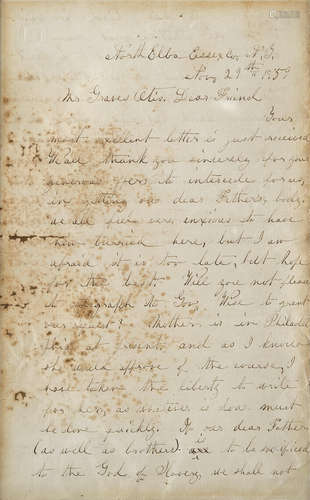 North Elba Essex Co, N.Y.
Nov 29th 1859
Mr Graves Oliv. Dear Friend
Your
most excellent letter is just received
We all thank you sincerely for your
generous offer to intercede for us,
in getting our dear Fathers body,
we all feel very anxious to have
him burried here, but I am
afraid it is too late; but hope
for the best. Will you not please
telegraph to Gov, Wise to grant
our request? Mother is in Philadel
at present, and as I know
she would approve of the course, I
have taken the liberty to write
for her, as whatever is done must
be done quickly. If our dear Father
(as well as brothers) is to be sacrificed
to the God of Slavery, we shall not